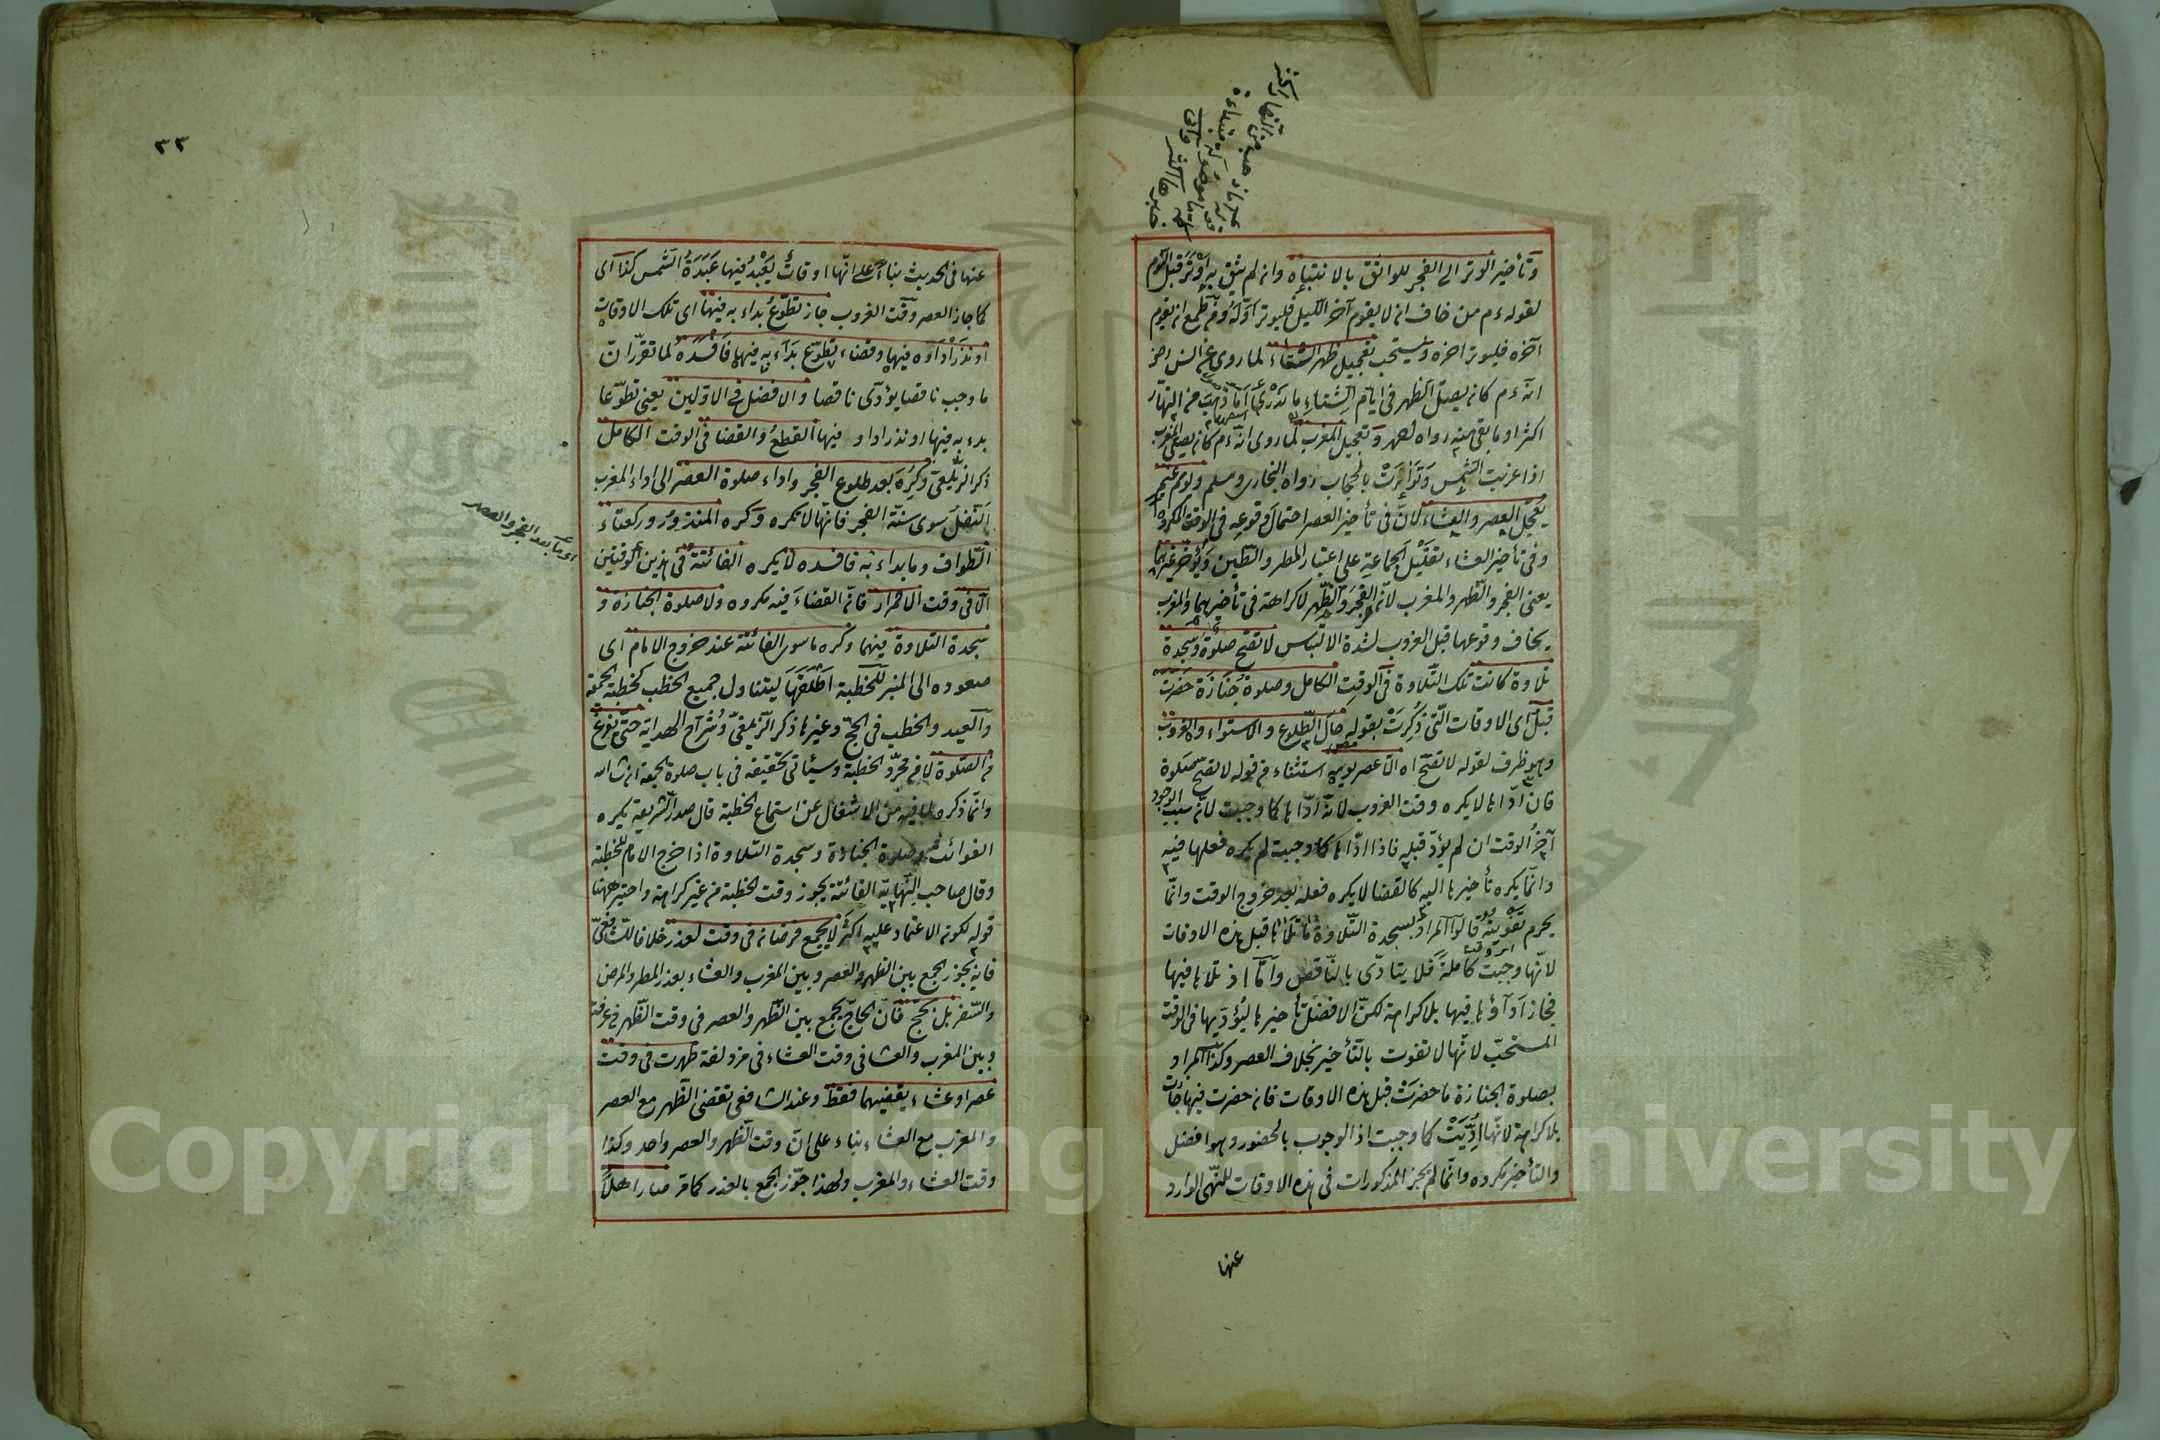 وتأخير الوتر الى الفجر للواثق بالانتباه وان لم يثق به اوتر قبل النوم
لقوله ءم من خاف ان لا يقوم آخر الليل فليوتر اوّله ومن طمع ان يقوم
آخره فليوتر اخره ويستحب تعجيل ظهر الشتاء لما روى عن انس رضز
انه ءم كان يصلى الظهر فى ايام الشتاء ما ندرى أما ذهب من النهار
اكثر او ما بقى منه رواه وتعجيل المغرب لما روى انه ءم كان يصلى المغرب
اذا غربت الشمس وتوارت بالحجاب رواه البخارى ومسلم ويوم غيم
يعجل العصر والعشاء لان فى تأخير العصر احتمال وقوعه فى الوقت المكروه
وفى تأخير العشاء تقليل الجماعة على اعتبار المطر والطين ويؤخر غيرهما
يعنى الفجر والظهر والمغرب لان الفجر والظهر لا كراهة فى تأخيرهما والمغرب
يخاف وقوعها قبل الغروب لشدة الالتباس لا تصح صلوة وسجدة
تلاوة كانت تلك التلاوة فى الوقت الكامل وصلوة جنازة حضرت
قبل اى الاوقات التى ذكرت بقوله حال الطلوع والاستواء والغروب
وهو ظرف لقوله لا تصح اه الا عصر يومه استثناء من قوله لا تصح صلوة
فان اداها لا يكره وقت الغروب لانه اداها كما وجبت لان سبب الوجود
آخر الوقت ان لم يؤد قبله فاذا اداها كما وجبت لم يكره فعلها فيه
وانما يكره تأخيرها اليه كالقضا لا يكره فعله بعد خروج الوقت وانما
يحرم تفويته قالوا المراد بسجدة التلاوة ما تلاها قبل هذه الاوقات
لانها وجبت كاملة فلا يتادى بالناقص واما اذ تلاها فيها
فجاز اداؤها فيها بلا كراهة لكن الافضل تأخيرها ليؤديها فى الوقت
المستحب لانها لا تفوت بالتأخير بخلاف العصر وكذا المراد
بصلوة الجنازة ما حضرت قبل هذه الاوقات فان حضرت فيها جازت
بلا كراهة لانها اديت كما وجبت اذ الوجوب بالحضور وهو افضل
والتأخير مكروه وانما لم يجز المذكورات فى هذه الاوقات للنهى الوارد
عنها
٣٣
عنها فى الحديث بناء على انها اوقات يعبد فيها عبدة الشمس كذا اى
كما جاز العصر وقت الغروب جاز تطوع بداء به فيها اى تلك الاوقات
او نذر اداؤه فيها وقضاء تطوع بداء به فيها فافسده لما تقرر ان
ما وجب ناقصا يؤدى ناقصا والافضل فى الاولين يعنى تطوعا
بدء به فيها او نذر اداوه فيها القطع والقضا فى الوقت الكامل
ذكر الزيلعى وكره بعد طلوع الفجر واداء صلوة العصر الى اداء المغرب
التنفل سوى سنة الفجر فانها لا تكره وكره المنذور وركعتاء
الطواف وما بداء به فافسده لا يكره الفائتة فى هذين الوقتين
اى ما بعد الفجر والعصر
الا فى وقت الاحمرار فان القضاء فيه مكروه ولا صلوة الجنازة و
سجدة التلاوة فيهما وكره ما سوى الفائتة عند خروج الامام اى
صعوده الى المنبر للخطبة اطلقها ليتناول جميع الخطب كخطبة الجمعة
والعيد والخطب فى الحج وغيرها ذكر الزيلعى وشراح الهداية حتى يفرغ
من الصلوة لا من مجرد الخطبة وسيأتى تحقيقه فى باب صلوة الجمعة ان شاء الله
وانما ذكره لما فيه من الاشتغال عن استماع الخطبة قال صدر الشريعة يكره
الفوائت وصلوة الجنازة وسجدة التلاوة اذا خرج الامام للخطبة
وقال صاحب النهاية الفائتة يجوز وقت الخطبة من غير كراهة واختير ههنا
قوله لكونه الاعتماد عليه اكثر لا يجمع فرضان فى وقت لعذر خلافا للشافعى
فانه يجوز الجمع بين الظهر والعصر وبين المغرب والعشاء بعذر المطر والمرض
والسفر بل بحج فان الحاج يجمع بين الظهر والعصر فى وقت الظهر فى عرفة
وبين المغرب والعشا فى وقت العشاء فى مزدلفة طهرت فى وقت
عصر او عشاء يقضيهما فقط وعند الشافعى تقضى الظهر مع العصر
والمغرب مع العشاء بناء على ان وقت الظهر والعصر واحد وكذا
وقت العشاء والمغرب ولهذا جوز الجمع بالعذر كما مر صار اهلا
Copyright © King Saud University